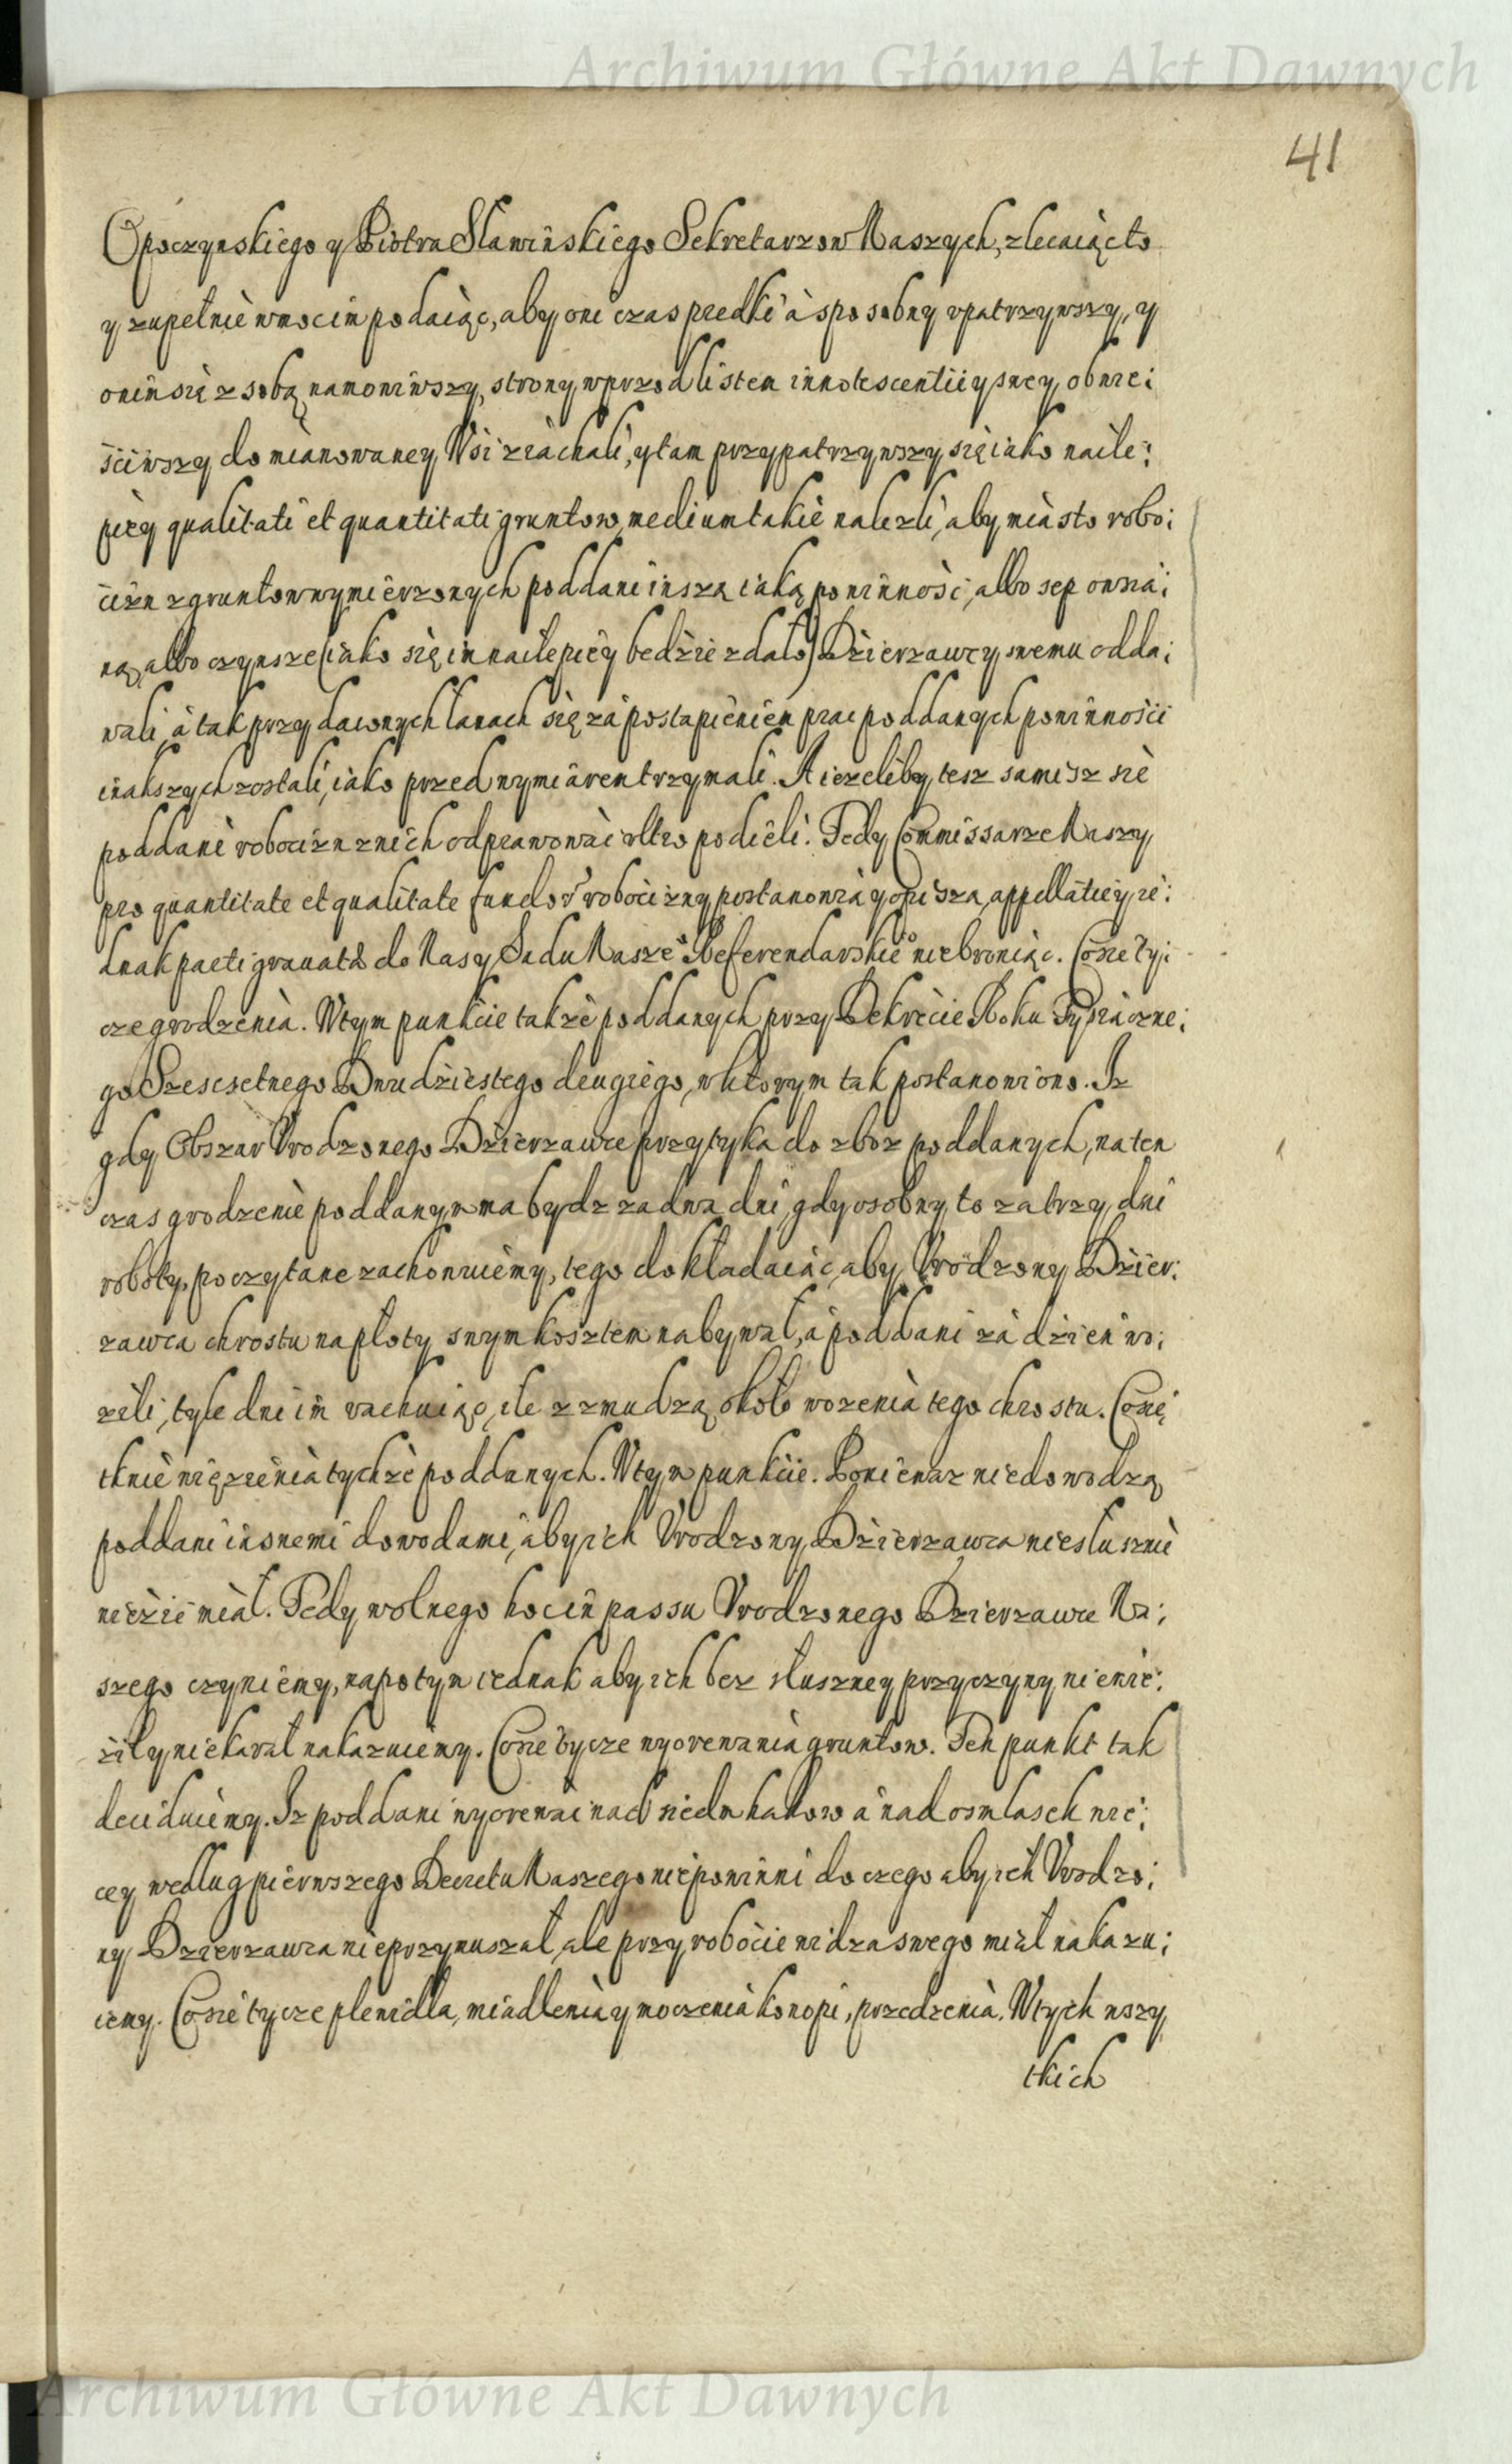 Archiwum Główne Akt Dawnych
41
Opoczynskiego y Piotra Sławinskiego Sekretarzow Naszych, zlecaiąc to
y zupełnie w moc im podaiąc, aby oni czas prędki à sposobny vpatrzywszy, y
o nim się z sobą namowiwszy, strony wprzod listem innotescentiiy swey obwie:
ściwszy do mianowaney Wsi ziachali, y tam przypatrzywszy się iako naile:
piey qualitati et quantitati gruntow, medium takie nalezli, aby miásto robo:
cizn z gruntow wymierzonych poddani inszą iaką powinność, albo sep owsia:
ną, albo czynsze (iako się im nailepiey będzie zdało) Dzierzawcy swemu odda:
wali, à tak przy dawnych łanach się zá postąpieniem prac poddanych powinności
inakszych zostali, iako przed wymiarem trzymali. A iezeliby tesz sami sz się
poddani robocizn z nich odprawowáć vltro podieli. Tedy Commissarze Naszy
pro quantitate et qualitate fundor̃ robocizny postanowią y opiszą, appellatiey ie:
dnak parti gravatæ do Nas y Sądu Nasze° Referendarskie° nie broniąc. Co się tyi
cze grodzenia. W tym punkcie także poddanych przy Dekrecie Roku Tysiączne:
go Szescsetnego Dwudziestego drugiego, w ktorym tak postanowiono. Iz
gdy Obszar Vrodzonego Dzierzawce przytyka do zboz poddanych, na ten
czas grodzenie poddanym ma bydz za dwa dni, gdy osobny to za trzy dni
roboty, poczytane zachowuiemy, tego dokładaiąc, aby Vrodzony Dzier:
zawca chrostu na płoty swym kosztem nabywał, à poddani zá dzień wo:
zili, tyle dni im rachuiąc, ile zzmudzą około wozenia tego chrostu. Co się
tknie więzienia tychże poddanych. W tym punkcie. Poniewaz nie dowodzą
poddani iasnemi dowodami, aby ich Vrodzony Dzierzawca niesłusznie
więzić miał. Tedy wolnego hoc in passu Vrodzonego Dzierzawce Na:
szego czyniemy, napotym iednak aby ich bez słuszney przyczyny nie wię:
ził y nie karał nakazuiemy. Co się tycze wyorewania gruntow. Ten punkt tak
deciduiemy. Iz poddani wyorewać nad siedm hakow à nad osm lasek wię:
cey według pierwszego Decretu Naszego nie powinni do czego aby ich Vrodzo:
ny Dzierzawca nie przymuszał, ale przy robocie widza swego miał nakazu:
iemy. Co się tycze plewidła, miadlenia y moczenia konopi, przedzenia. W tych wszy
tkich
Archiwum Główne Akt Dawnych